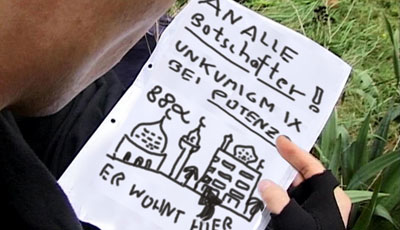 AN ALLE
Botschafter!
UNKUMIGM IX
BEI POTENZ
88a
ER WOHNT HIER